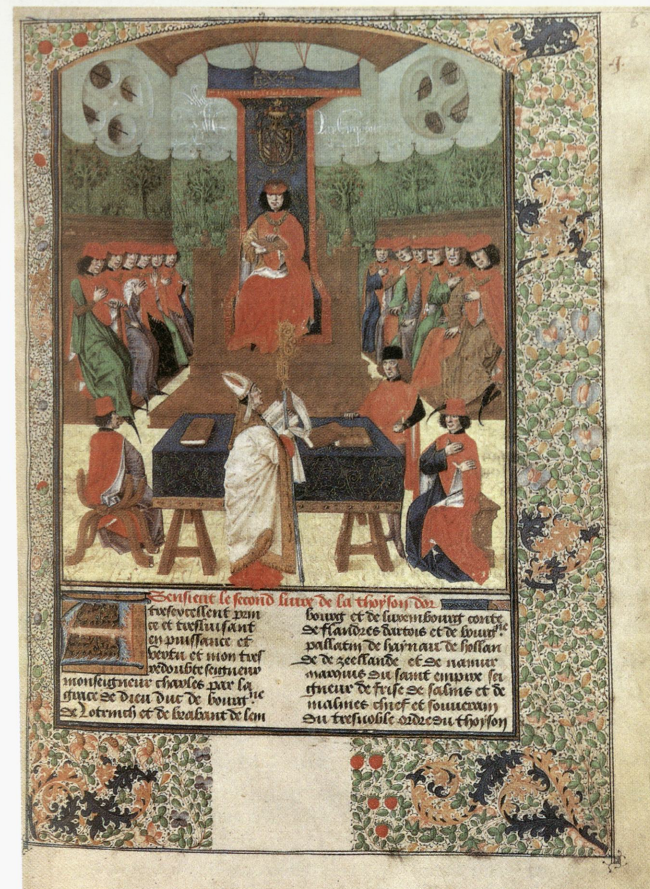 Sensieut le second livre de la thoyson dor
tresexcellent prin
ce et tresluisant
en puissance et
vertu et mon tres
redoubte seigneur
monseigneur charles par la
grace de dieu duc de bourg.ne
de Lotrinch et de brabant de lem
bourg et de luxembourg conte
de flandres dartois et de bourg.ne
pallatin de haynau de hollan
de de zeellande et de namur
marquis du saint empire sei
gneur de frise de salins et de
malines chief et souverain
du tresnoble ordre du thoyson